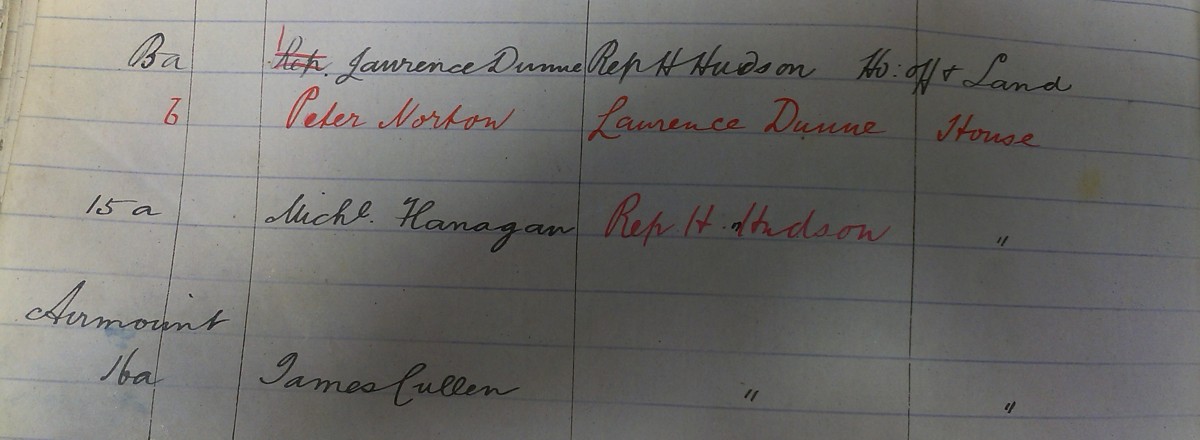 Ba Rep. Laurence Dunne Rep H Hudson Ho: off & Land
b Peter Norton Laurence Dunne House
15 a Michl. Flanagan Rep H. Hudson "
Airmount
16a James Cullen " "